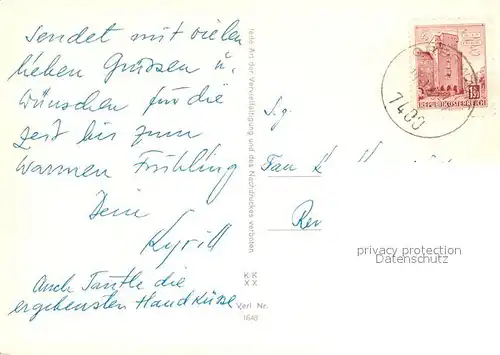 sendet mit vielen
lieben Grüssen u.
Wünschen für die
Zeit bis zum
warmen Frühling
Dein
Kyrill
Auch Tantle die
ergebensten Handküsse
Jede Art der Vervielfältigung und des Nachdruckes verboten
K/K
X X
Verl. Nr.
1648
S.g.
REPUBLIK ÖSTERREICH
7400
privacy protection
Datenschutz